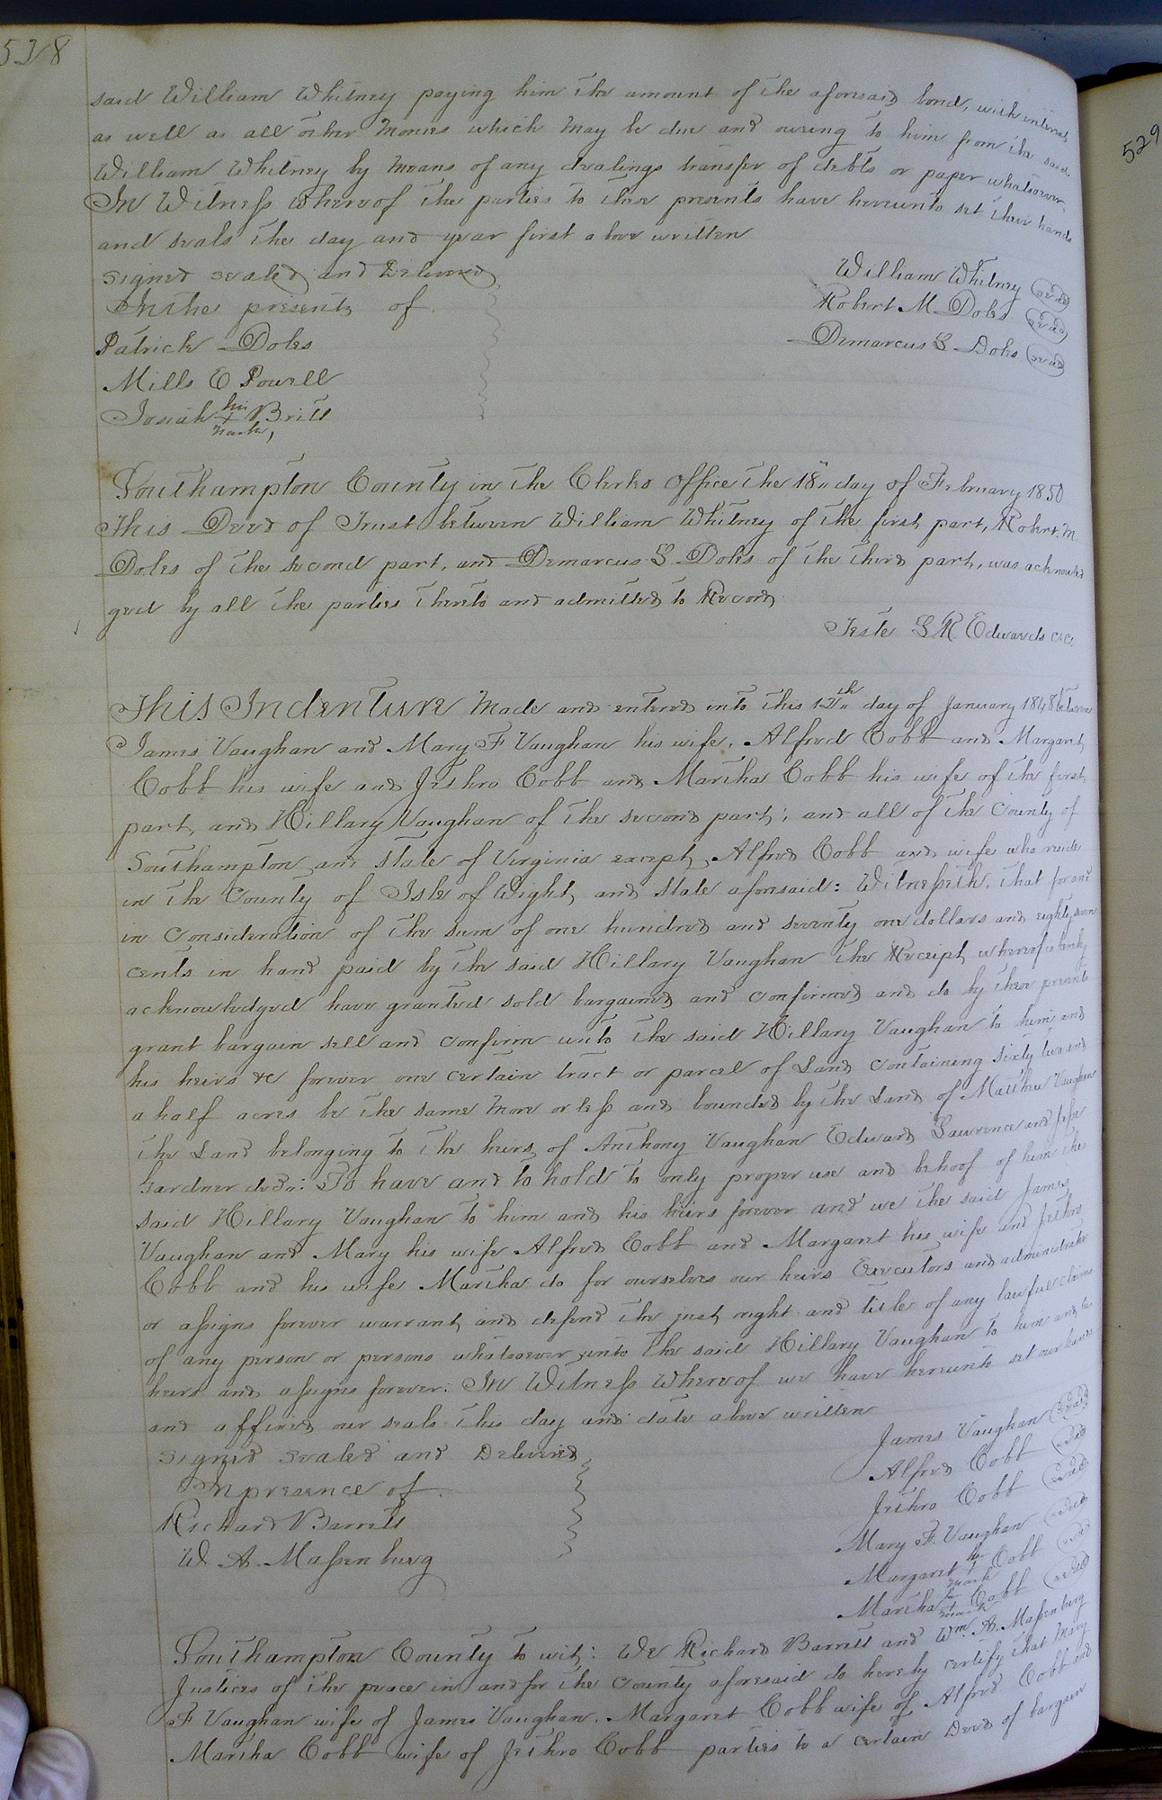 528
said William Whitney paying him the amount of the aforesaid bond, with interest
as well as all other Monies which May be due and owing to him from the said
William Whitney by Means of any dealings transfer of debts or paper whatsoever.
In Witness Whereof the parties to these presents have hereunto set their hands
and seals the day and year first above written
Signed sealed and Delivered
William Whitney seal
In the presents of
Robert M Doles seal
Patrick Doles
Demarcus S Doles seal
Mills E Powell
Josiah his + mark Britt
529
Southampton County in the Clerks Office the 18" day of February 1850
This Deed of Trust between William Whitney of the first part, Robert M
Doles of the second part, and Demarcus S Doles of the third part, was acknowled
ged by all the parties thereto and admitted to Record
Teste L R Edwards c.c.
This Indenture Made and entered into this 12th day of January 1848 between
James Vaughan and Mary F Vaughan his wife, Alfred Cobb and Margaret
Cobb his wife and Jethro Cobb and Martha Cobb his wife of the first
part, and Hillary Vaughan of the second part; and all of the County of
Southampton and State of Virginia except Alfred Cobb and wife who reside
in the County of Isle of Wight, and State aforesaid: Witnesseth. That for and
in Consideration of the sum of one hundred and seventy one dollars and eighty seven
cents in hand paid by the said Hillary Vaughan the Receipt whereof is hereby
acknowledged have granted sold bargained and confirmed and do by these presents
grant bargain sell and confirm unto the said Hillary Vaughan to him and
his heirs &c forever one certain tract or parcel of Land Containing Sixty two and
a half acres be the same more or less and bounded by the Land of Matthew Vaughan
the Land belonging to the heirs of Anthony Vaughan Edward Lawrence and Jesse
Gardner decd: To have and to hold to only proper use and behoof of him the
said Hillary Vaughan to him and his heirs forever and we the said James
Vaughan and Mary his wife Alfred Cobb and Margaret his wife and Jethro
Cobb and his wife Martha do for ourselves our heirs Executors and administrators
or assigns forever warrant and defend the just right and title of any lawful claims
of any person or persons whatsoever unto the said Hillary Vaughan to him and his
heirs and assigns forever: In Witness Whereof we have hereunto set our hands
and affixed our seals this day and date above written
Signed sealed and Delivered
James Vaughan seal
In presence of
Alfred Cobb seal
Richard Barrett
Jethro Cobb seal
W. A. Massenburg
Mary F. Vaughan seal
Margaret her + mark Cobb seal
Martha her + mark Cobb seal
Southampton County to wit: We Richard Barrett and Wm. A. Massenburg
Justices of the peace in and for the County aforesaid do hereby certify that Mary
F Vaughan wife of James Vaughan. Margaret Cobb wife of Alfred Cobb and
Martha Cobb wife of Jethro Cobb parties to a certain Deed of bargain